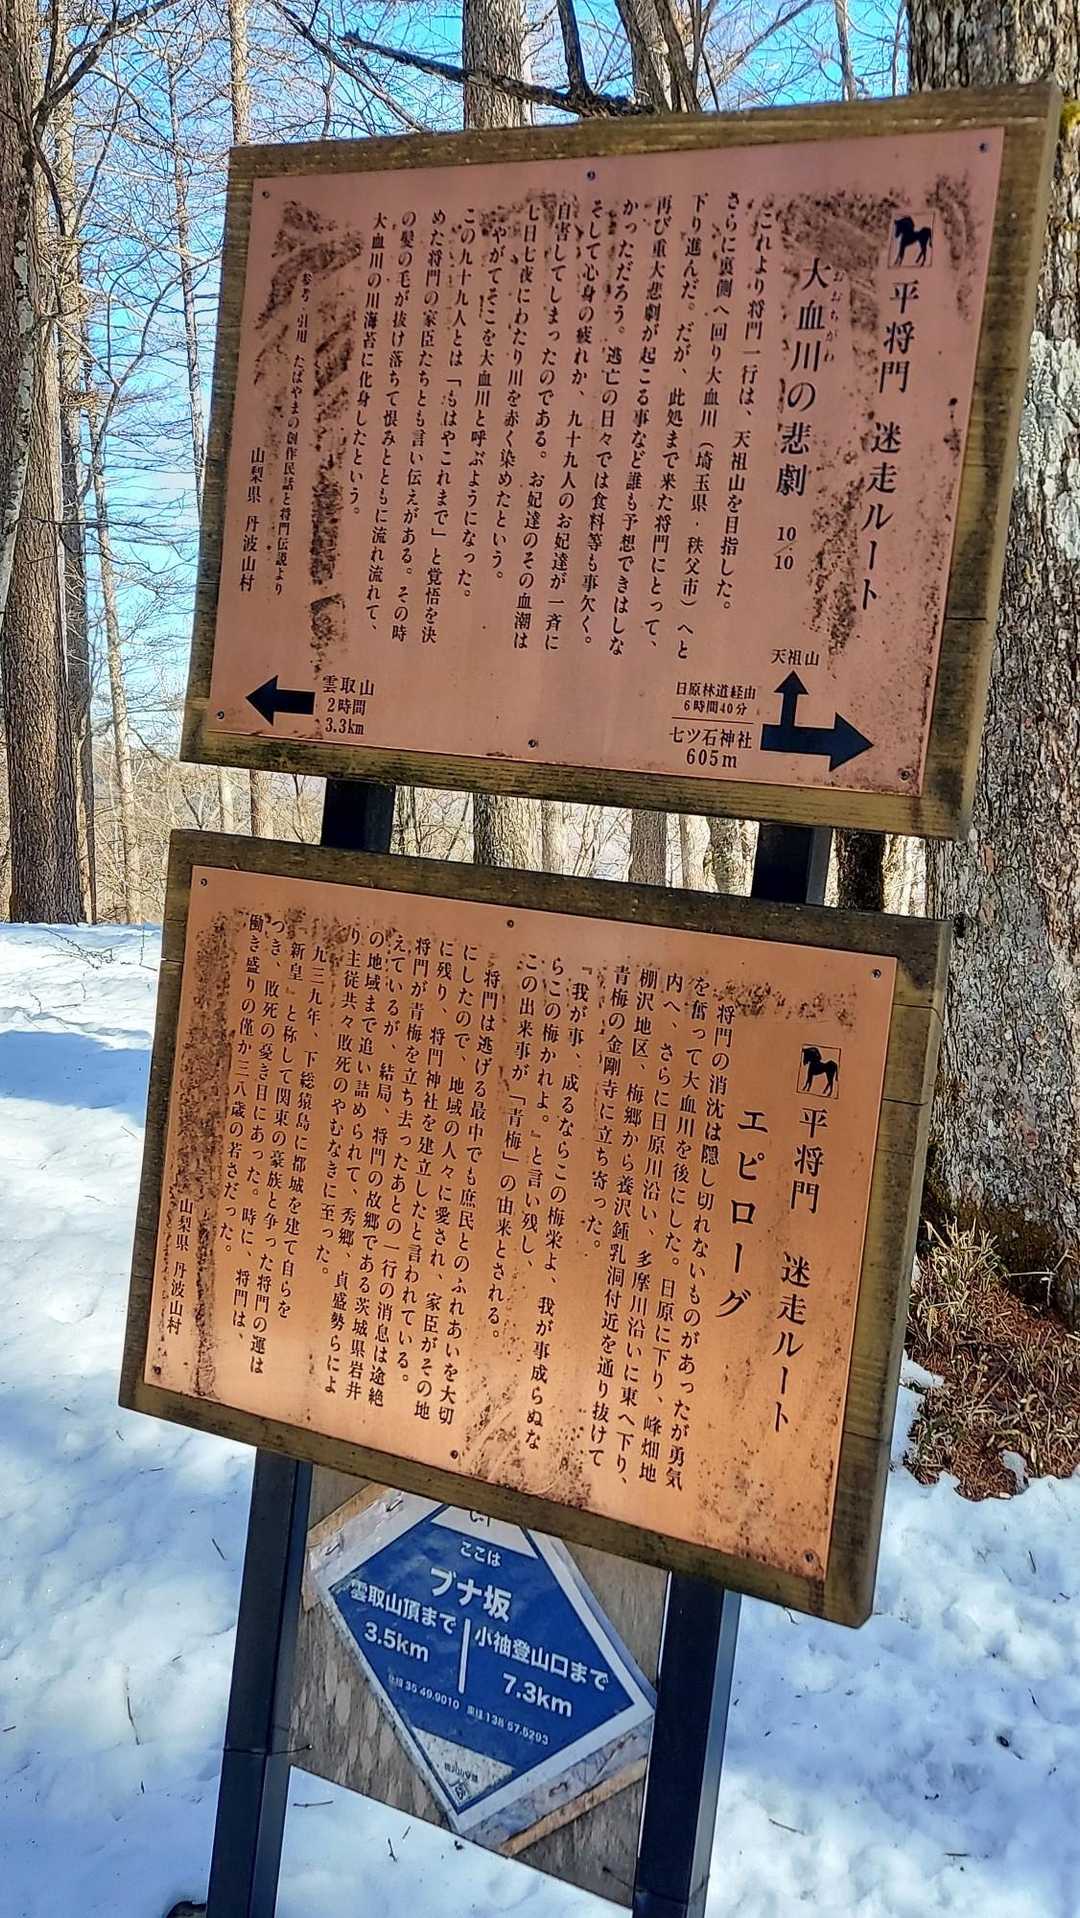 平将門 迷走ルート
大血川の悲劇 10/10
おおちがわ
これより将門一行は、天祖山を目指した。
さらに裏側へ回り大血川（埼玉県・秩父市）へと
下り進んだ。だが、此処まで来た将門にとって、
再び重大悲劇が起こる事など誰も予想できはしな
かっただろう。逃亡の日々では食料等も事欠く。
そして心身の疲れか、九十九人のお妃達が一斉に
自害してしまったのである。お妃達のその血潮は
七日七夜にわたり川を赤く染めたという。
やがてそこを大血川と呼ぶようになった。
この九十九人とは「もはやこれまで」と覚悟を決
めた将門の家臣たちとも言い伝えがある。その時
の髪の毛が抜け落ちて恨みとともに流れ流れて、
大血川の川海苔に化身したという。
参考・引用 たばやまの創作民話と将門伝説より
山梨県 丹波山村
雲取山
2時間
3.3km
天祖山
日原林道経由
6時間40分
七ツ石神社
605m
平将門 迷走ルート
エピローグ
将門の消沈は隠し切れないものがあったが勇気
を奮って大血川を後にした。日原に下り、峰畑地
内へ、さらに日原川沿い、多摩川沿いに東へ下り、
棚沢地区、梅郷から養沢鍾乳洞付近を通り抜けて
青梅の金剛寺に立ち寄った。
『我が事、成るならこの梅栄よ、我が事成らぬな
らこの梅かれよ。』と言い残し、
この出来事が「青梅」の由来とされる。
将門は逃げる最中でも庶民とのふれあいを大切
にしたので、地域の人々に愛され、家臣がその地
に残り、将門神社を建立したと言われている。
将門が青梅を立ち去ったあとの一行の消息は途絶
えているが、結局、将門の故郷である茨城県岩井
の地域まで追い詰められて、秀郷、貞盛勢らによ
り主従共々敗死のやむなきに至った。
九三九年、下総猿島に都城を建て自らを
「新皇」と称して関東の豪族と争った将門の運は
つき、敗死の憂き目にあった。時に、将門は、
働き盛りの僅か三八歳の若さだった。
山梨県 丹波山村
ここは
ブナ坂
雲取山頂まで
3.5km
小袖登山口まで
7.3km
北緯 35 49.9010 東経 138 57.5293